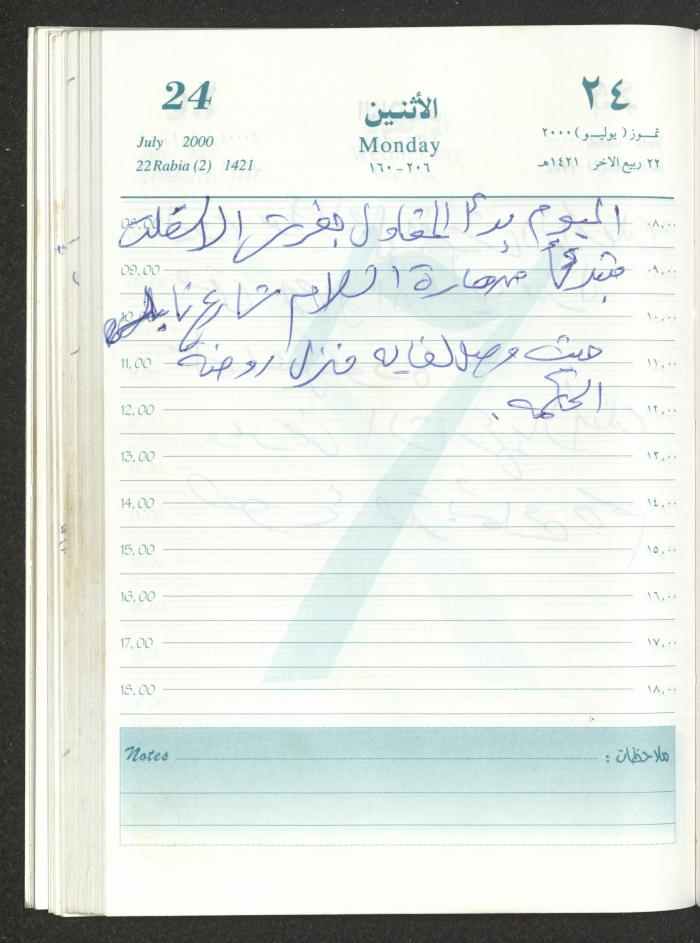 24
الأثنين
٢٤
July 2000
Monday
تموز (يوليو) ٢٠٠٠
22 Rabia (2) 1421
٢٠٦-١٦٠
٢٢ ربيع الآخر ١٤٢١هـ
08,00 ٠٨,٠٠
اليوم بدأ المقاول بفرش الاسفلت
09,00 ٠٩,٠٠
مبتدئاً من السلام شارع
10,00 ١٠,٠٠
حيث وصل لغاية منزل روضة
11,00 ١١,٠٠
الحكمة.
12,00 ١٢,٠٠
13,00 ١٣,٠٠
14,00 ١٤,٠٠
15,00 ١٥,٠٠
16,00 ١٦,٠٠
17,00 ١٧,٠٠
18,00 ١٨,٠٠
Notes ملاحظات :